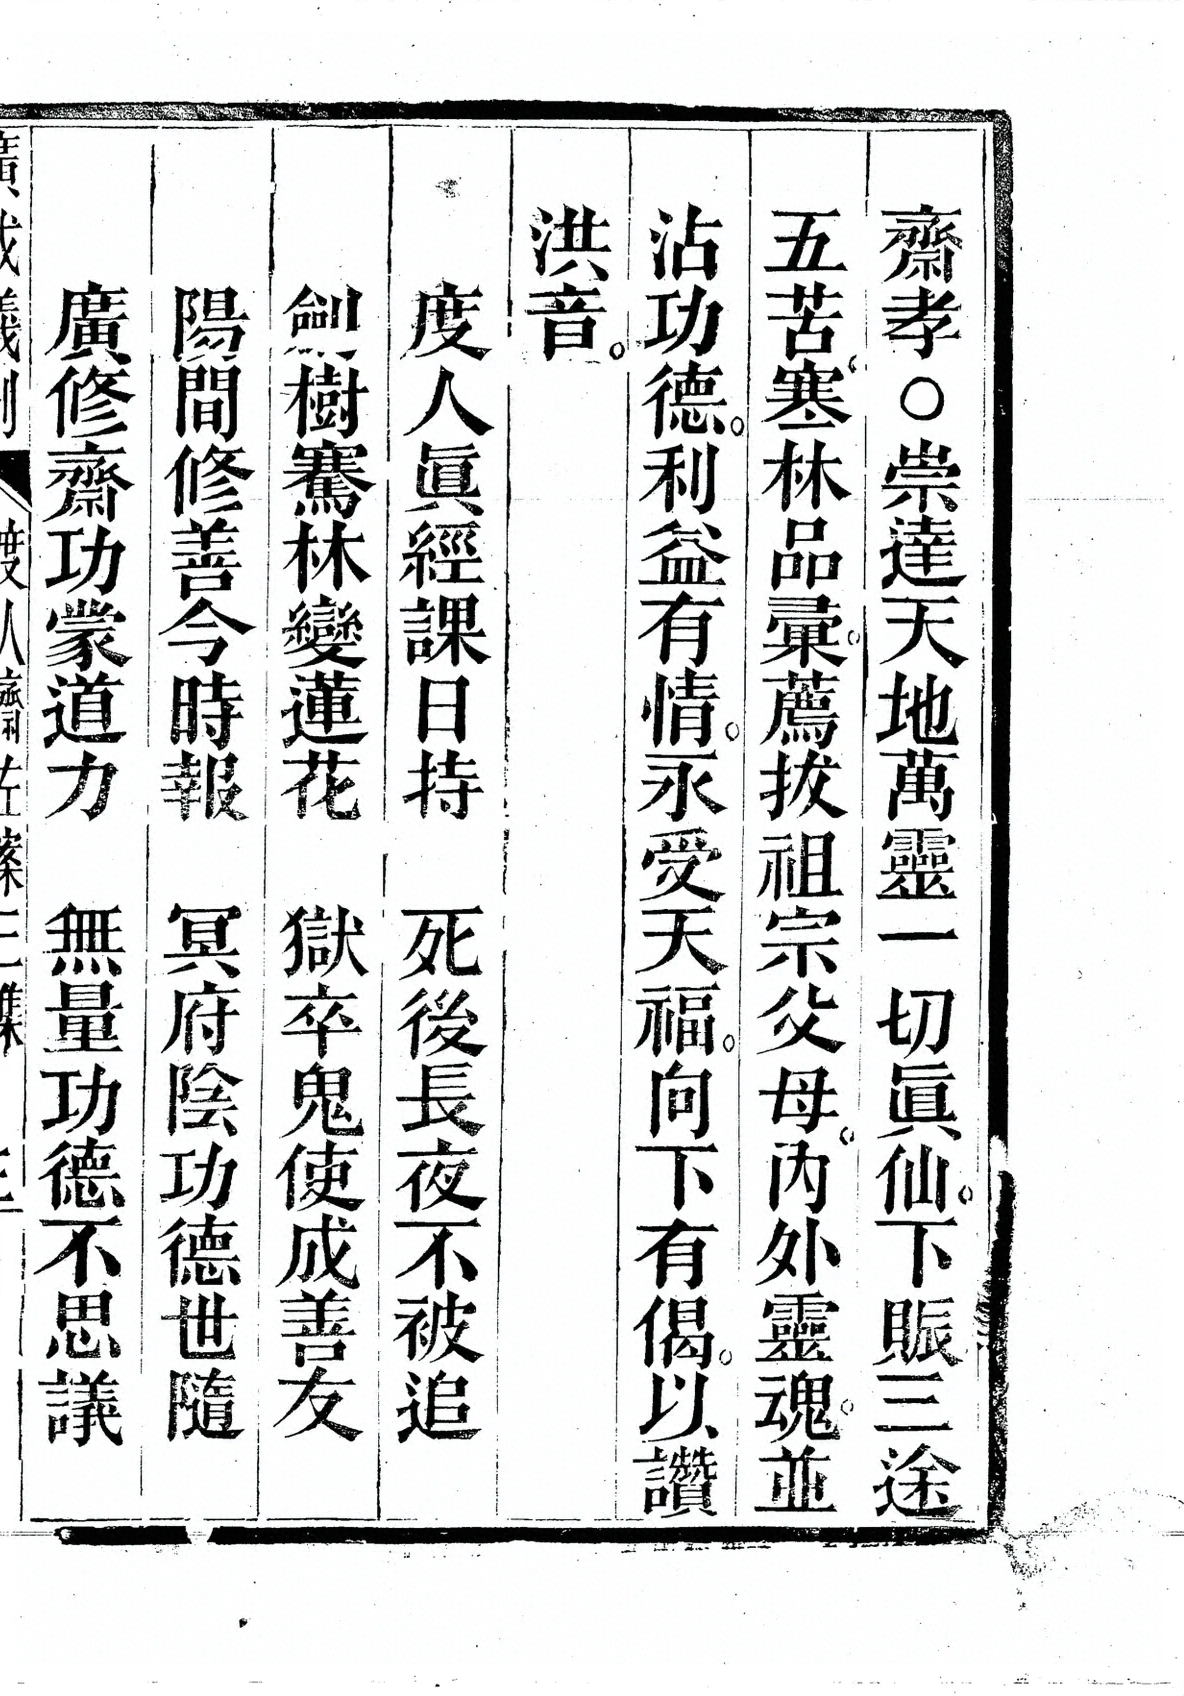 齋孝○崇達天地萬靈一切眞仙。下賑三途
五苦。寒林品彙。薦拔祖宗父母。內外靈魂。並
沾功德。利益有情。永受天福。向下有偈。以讚
洪音。
度人眞經課日持　死後長夜不被追
劍樹騫林變蓮花　獄卒鬼使成善友
陽間修善今時報　冥府陰功德世隨
廣修齋功蒙道力　無量功德不思議
廣成儀制　度人齋左案三集　三